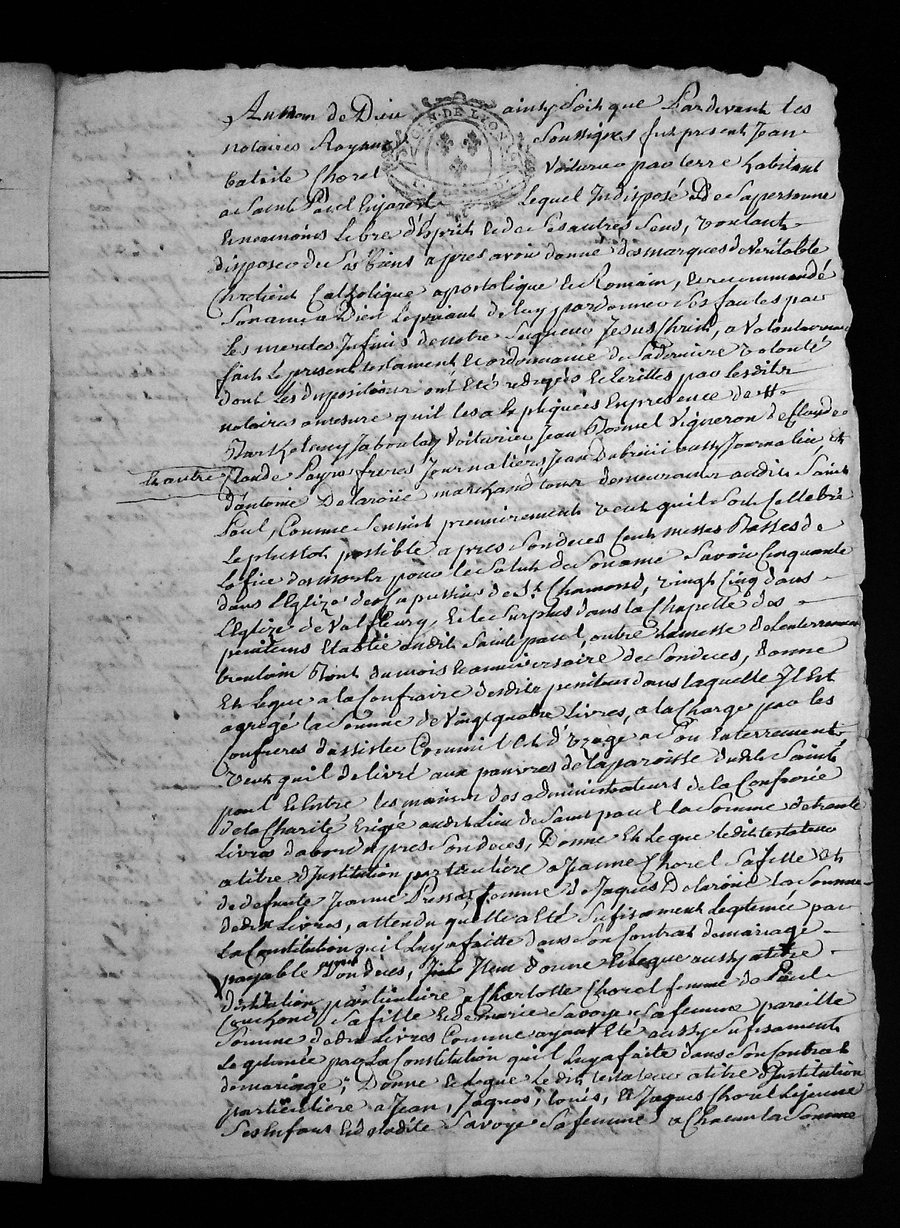 Au Nom de Dieu ainsy Soit que Pardevant les
notaires Royaux Soussignes fut present Jean
batiste Chorel Voiturier par terre habitant
a Saint Paul En Jarest Lequel Indisposé de Sa personne
Et neanmoins Libre desprit Et de Ses autres Sens, voulant
disposer de Ses biens apres avoir donné des marques de veritable
Chretient Catholique apostolique Et Romain, Et recommandé
Son ame a Dieu Le priant de luy pardonner Ses fautes par
Les merites Infinis de notre Seigneur Jesus Christ, a volontairement
fait Le present testament Et ordonnance de Sa derniere volonté
dont Les dispositions ont Eté redigées Et Ecrittes par lesdits
notaires amesure quil les a Expliquées En presence de
Jaboulay Voiturier, Jean Bonnel Vigneron
Et autre Claude Payre freres Journaliers, Jean Dubreuil aussy Journalier, Et
dantoine Delaroüe marchand tous demeurants audit Saint
Paul, Comme Sensuit premierement veut quil Soit Cellebré
Le plustot possible apres Son deces Cent messes Basses de
Lofice des morts pour le Salut de Son ame Savoir Cinquante
dans LEglize des Capucins de St Chamond, vingt Cinq dans
LEglize de Valfleury, Et le Surplus dans la Chapelle des
penitens Etablie audit Saint paul, outre La messe de Lenterrement
bout du mois Et anniversaire de Son deces, donne
Et Legue a la Confrairie desdits penitens dans laquelle Il Est
agregé la Somme de Vingt quatre Livres, a la Charge par les
Confreres dassister Comme il Est dusage a Son Enterrement
Veut quil Delivré aux pauvres de la paroisse dudit Saint
paul Et Entre les mains des administrateurs de la Confrerie
de la Charité Erigée audit Lieu de Saint paul la Somme de trante
Livres dabord apres Son deces, Donne Et Legue ledit testateur
a titre dInstitution particuliere a Jeanne Chorel Sa fille Et
de defunte Jeanne Pressat, femme de Jaques Delaroüe La Somme
de dix Livres, attendu quelle a Eté Sufisament Legitimée par
La Constitution quil Luy a faitte dans Son Contrat de mariage
payable apres Son deces, Item donne Et Legue aussy a titre
dInstitution particuliere a Charlotte Chorel femme de Paul
Couchond Sa fille Et de marie Savoye Sa femme pareille
Somme de dix Livres Comme ayant Eté aussy Sufisament
Legitimée par La Constitution quil Luy a faite dans Son Contrat
de mariage; Donne Et Legue Le dit testateur a titre dInstitution
particuliere a Jean, Jaques, Louis, Et Jaques Chorel Lejeune
Ses Enfans Et de ladite Savoye Sa femme a Chacun La Somme